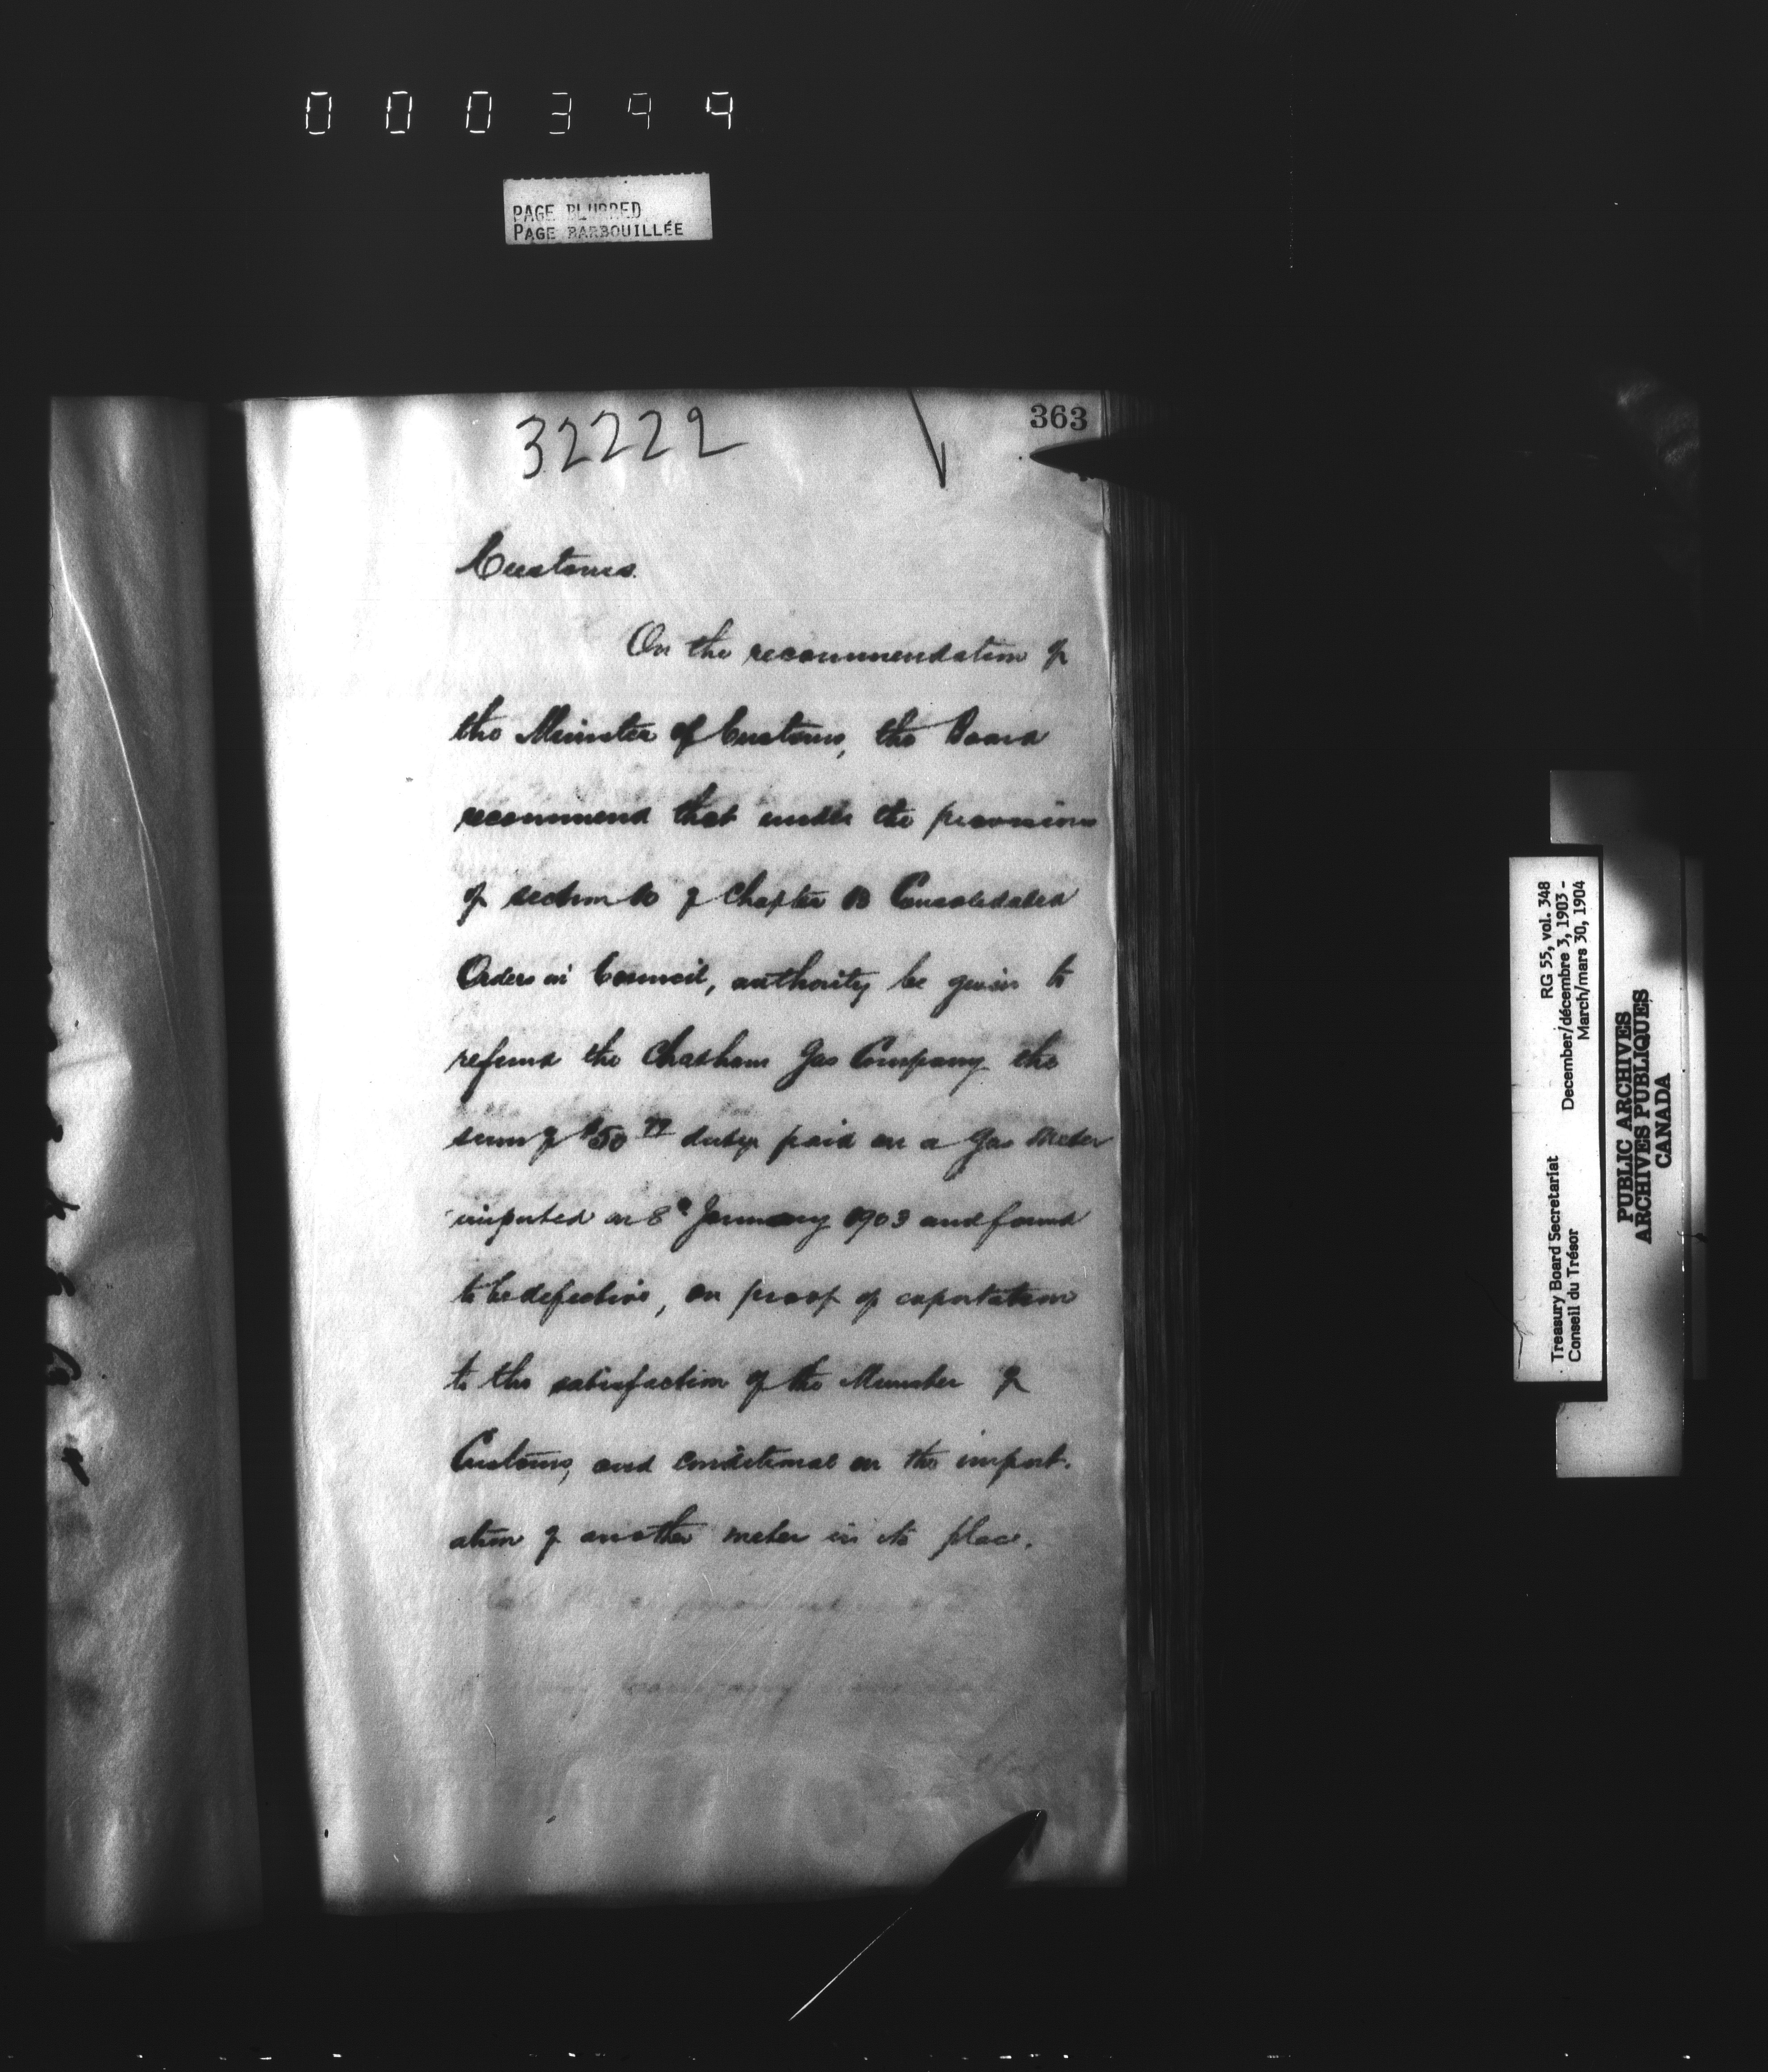 000399
PAGE BLURRED
PAGE BARBOUILLÉE
363
32222
Customs.
On the recommendation of
the Minister of Customs, the Board
recommend that under the provisions
of section 10 of Chapter Consolidated
Orders in Council, authority be given to
refund the Chatham Gas Company the
sum of $50 duty paid on a Gas Meter
imported on 8 January 1903 and found
to be defective, on proof of exportation
to the satisfaction of the Minister of
Customs, and conditional on the import-
ation of another meter in its place.
Treasury Board Secretariat RG 55, vol. 348
Conseil du Trésor December/décembre 3, 1903 -
March/mars 30, 1904
PUBLIC ARCHIVES
ARCHIVES PUBLIQUES
CANADA